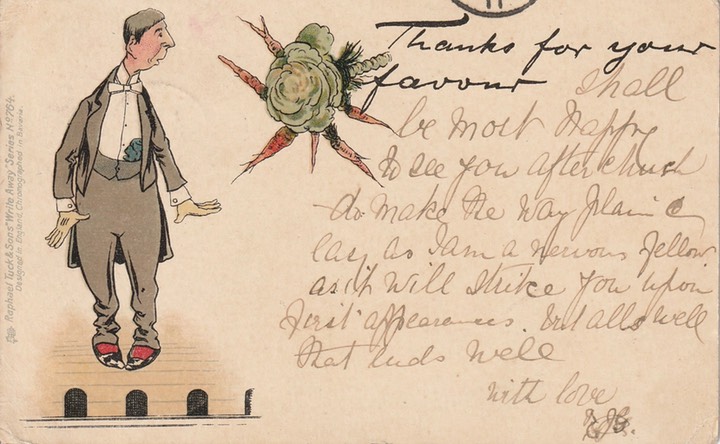 Thanks for your
favour shall
be most Happy
to see you after church
do make the way plain &
easy as I am a nervous fellow
as it will strike you upon
first appearances. but alls well
that ends well
with love
Raphael Tuck & Sons' "Write Away" Series Nº 764.
Designed in England, Chromographed in Bavaria.